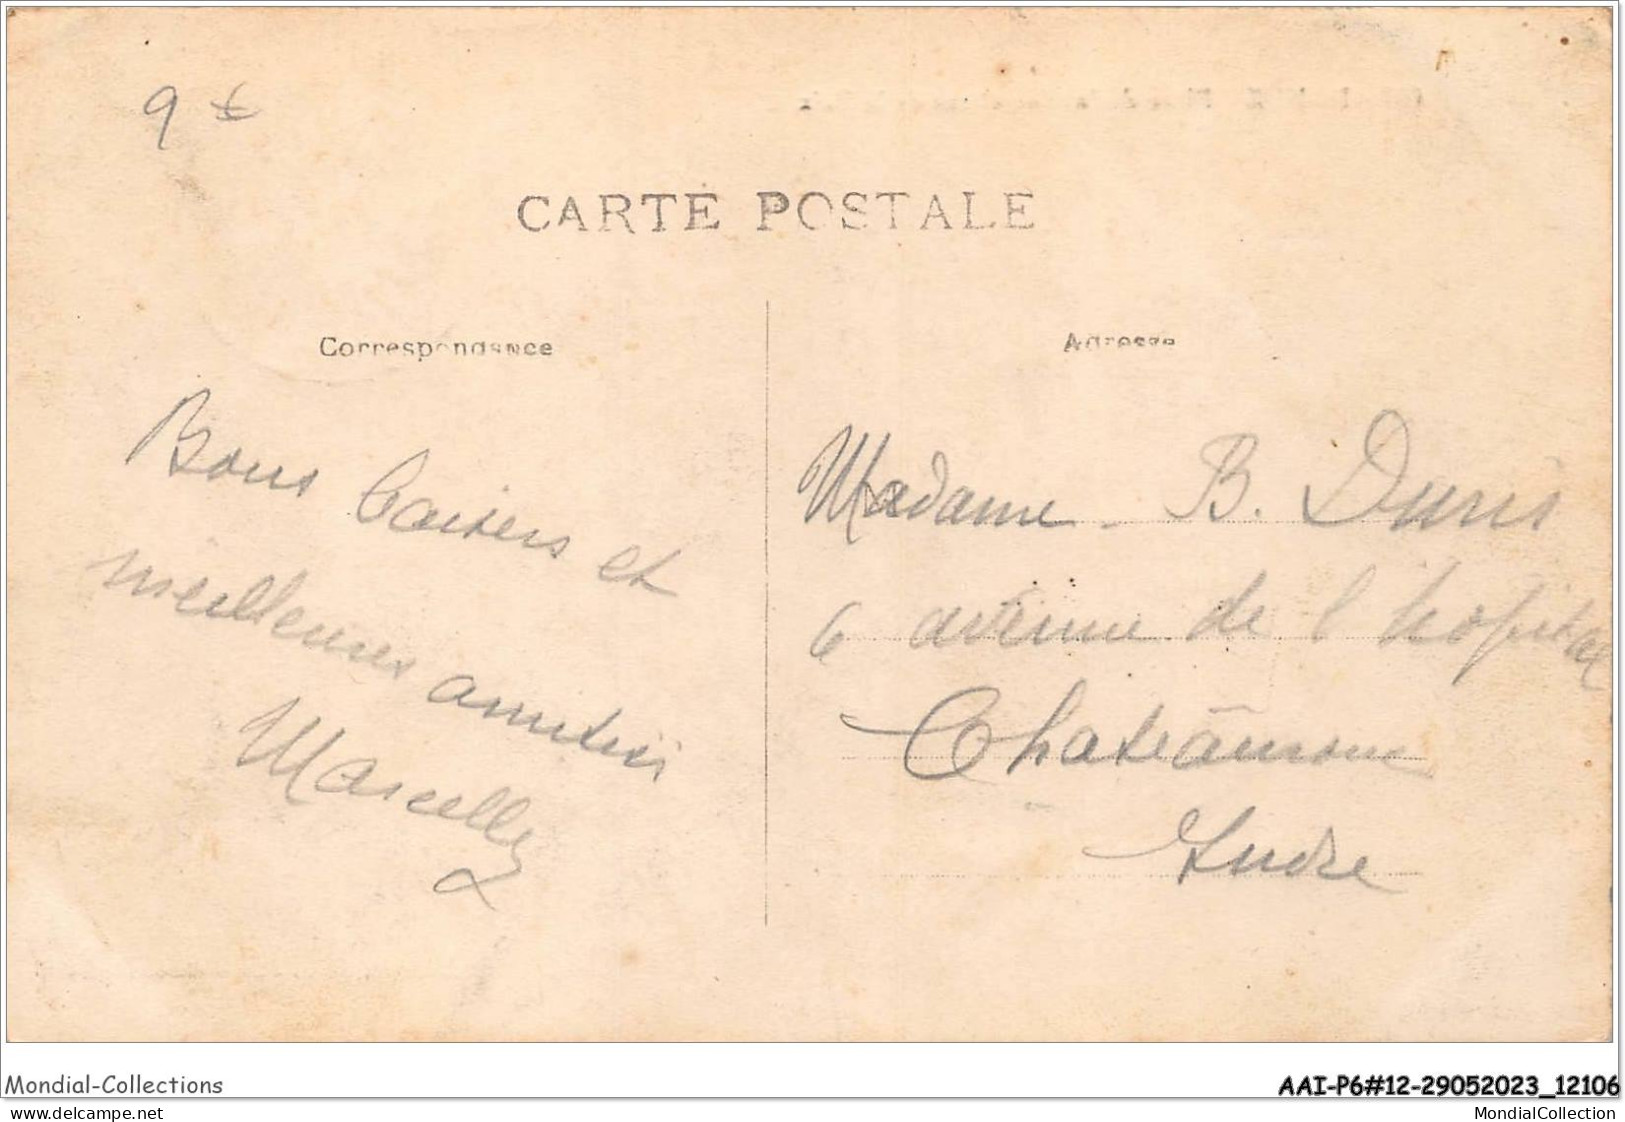 9 €
CARTE POSTALE
Correspondance
Adresse
Bons baisers et
meilleures amitiés
Marcelle
Madame B. Duris
6 avenue de l'hopital
Chateauroux
Indre
Mondial-Collections
AAI-P6#12-29052023_12106
delcampe.net
MondialCollection